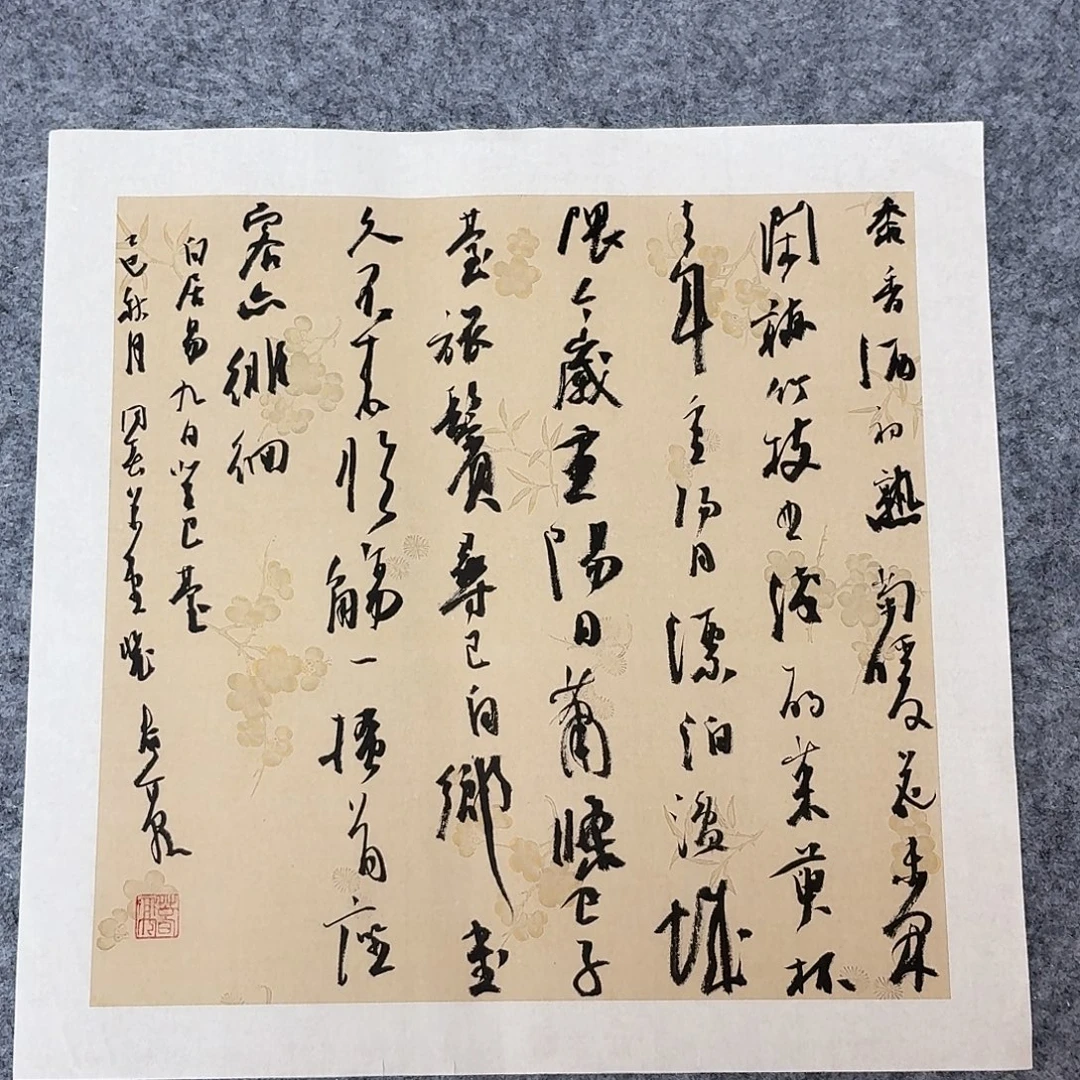 黍香酒初熟菊暖花未開
閑聽竹枝曲淺酌茱萸杯
去年重陽日漂泊湓城
隈今歲重陽日蕭條巴子
臺旅鬢尋已白鄉書
久不來臨觴一搔首座
客亦徘徊
白居易九日登巴臺
乙巳秋月